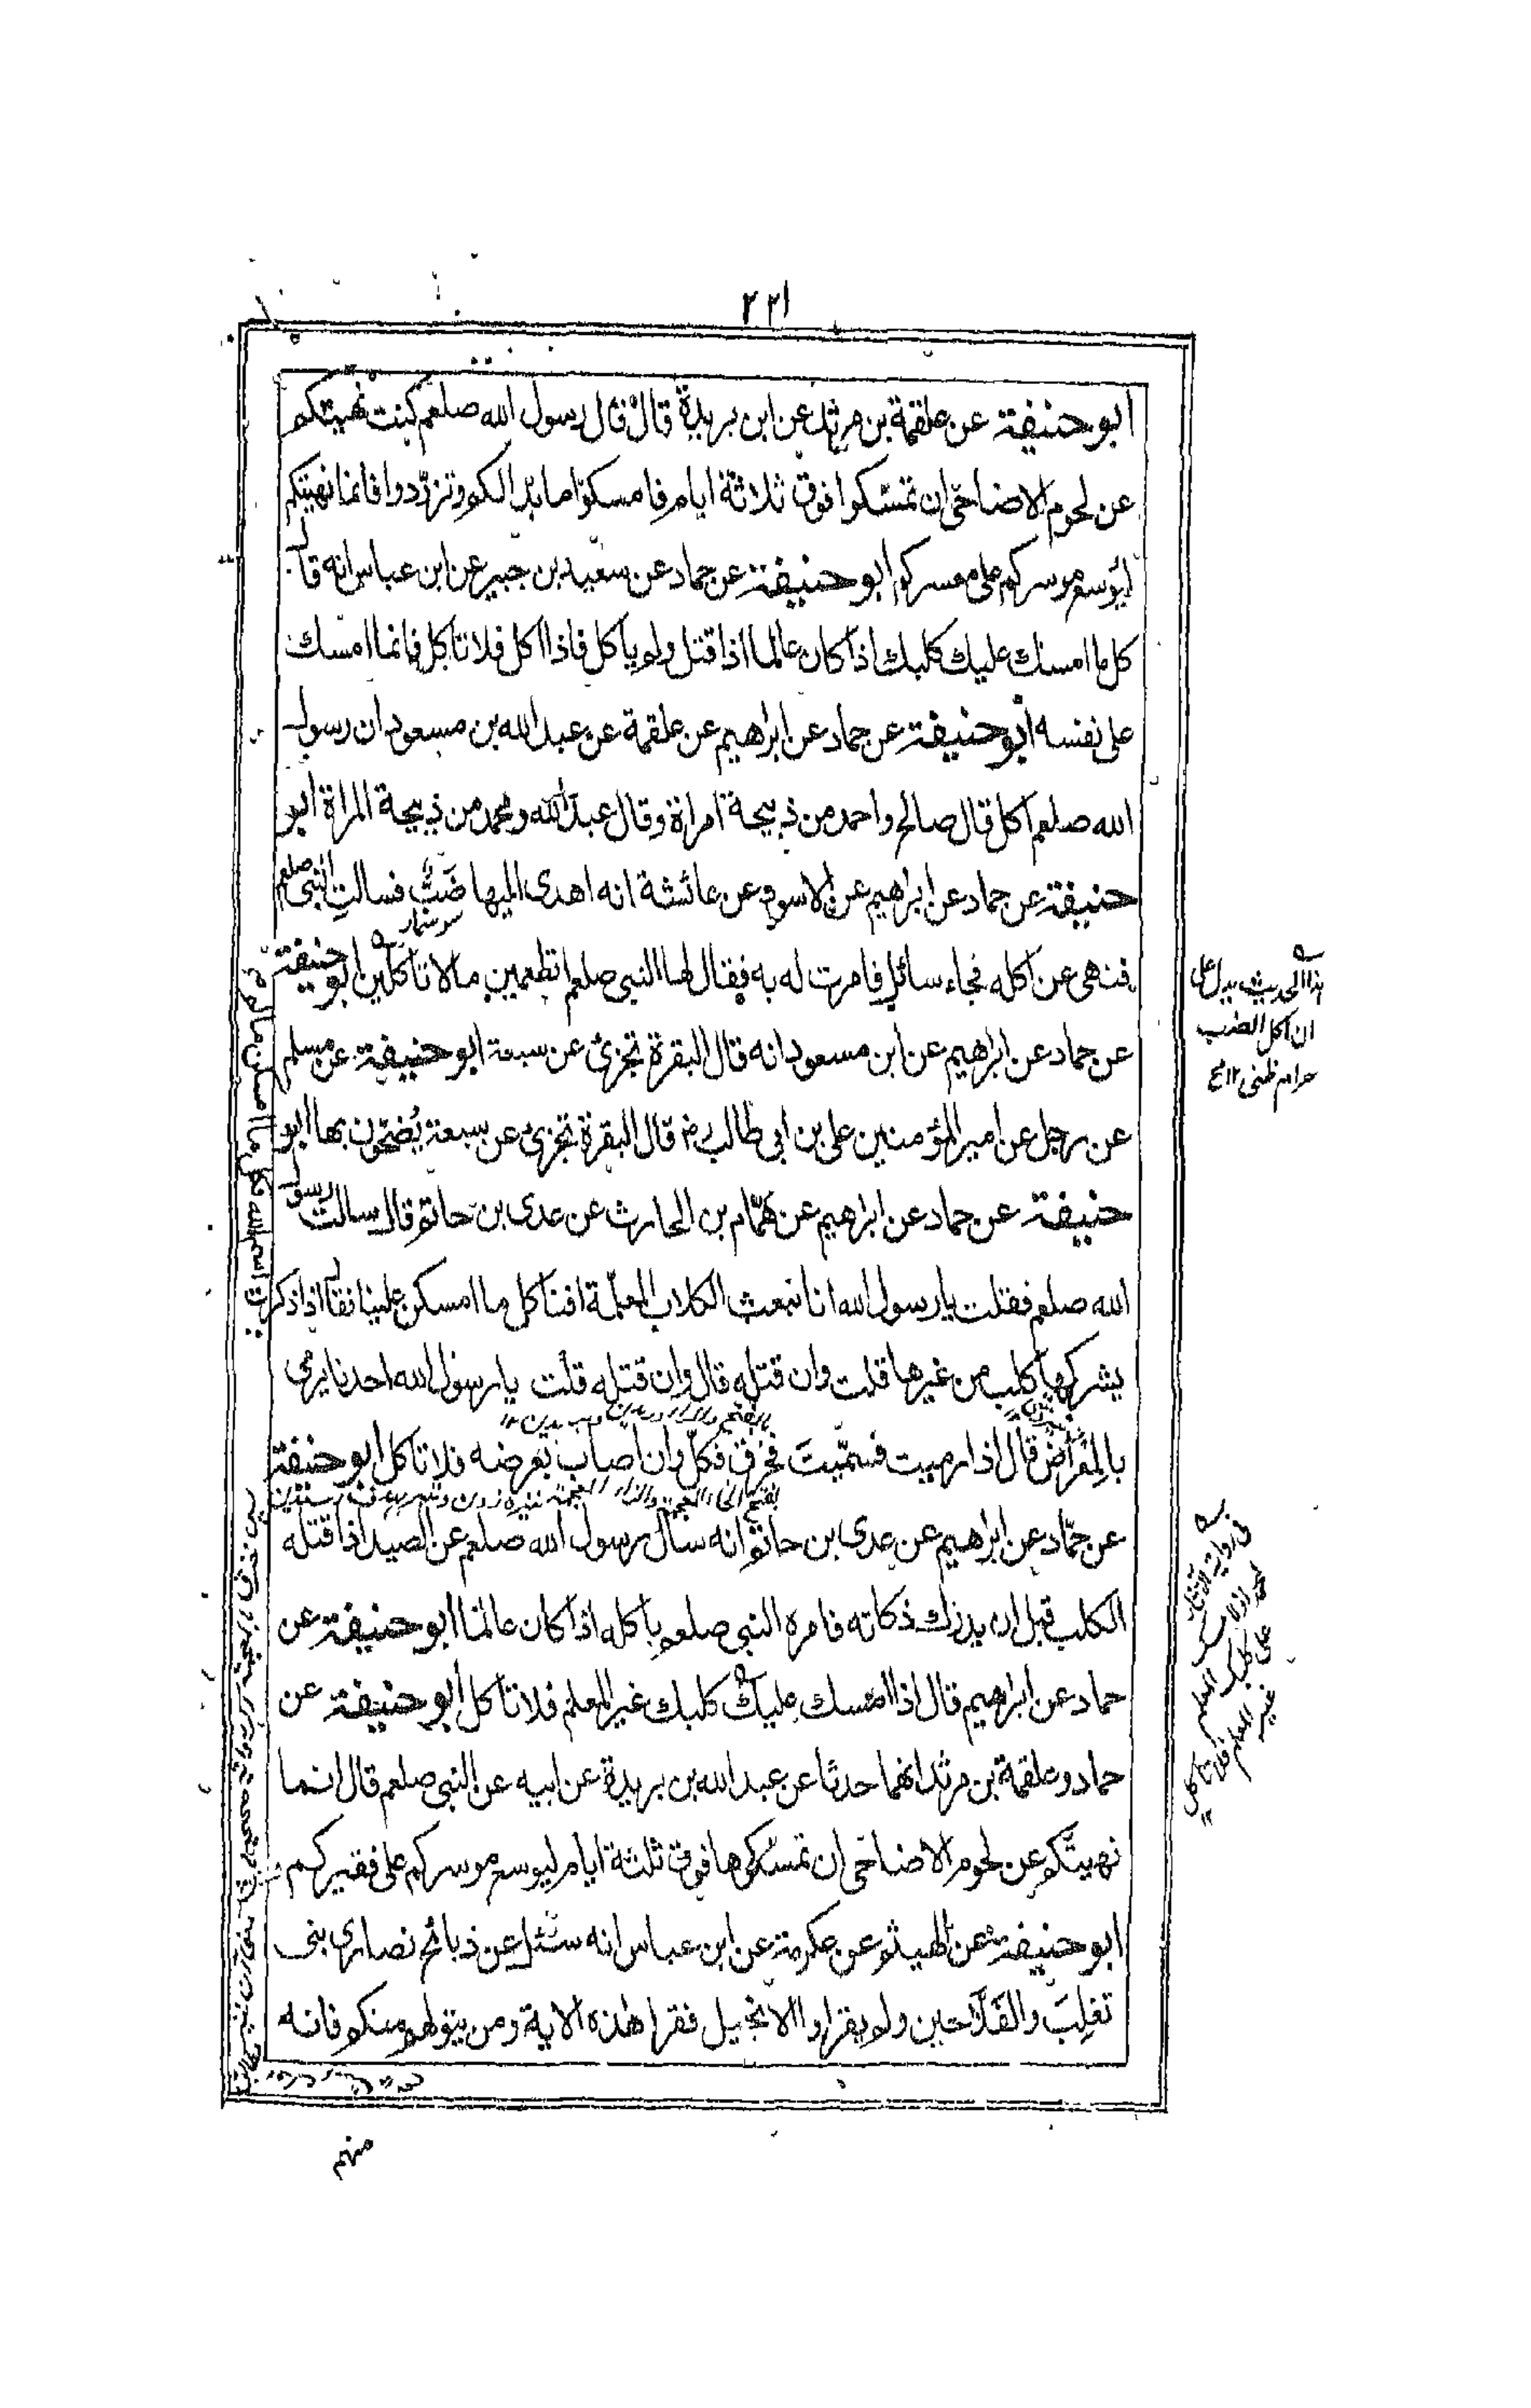 ٢٢١
ابو حنيفة عن علقمة بن مرثد عن ابن بريدة قال قال رسول الله صلعم كنت نهيتكم
عن لحوم الاضاحى ان تمسكوا فوق ثلاثة ايام فامسكوا ما بدا لكم وتزودوا فانما نهيتكم
ليوسع موسركم على معسركم ابو حنيفة عن حماد عن سعيد بن جبير عن ابن عباس انه قال
كل ما امسك عليك كلبك اذا كان عالما اذا قتل ولم ياكل فاذا اكل فلا تاكل فانما امسك
على نفسه ابو حنيفة عن حماد عن ابراهيم عن علقمة عن عبد الله بن مسعود ان رسول
الله صلعم اكل قال صالح واحمد من ذبيحة امراة وقال عبد الله ومحمد من ذبيحة المراة ابو
حنيفة عن حماد عن ابراهيم عن الاسود عن عائشة انه اهدى اليها ضَبٌّ فسالتِ النبى صلعم
سوسمار
فنهى عن اكله فجاء سائل فامرت له به فقال لها النبى صلعم اتطعمين ما لا تاكلين ابو حنيفة
عن حماد عن ابراهيم عن ابن مسعود انه قال البقرة تجزئ عن سبعة ابو حنيفة عن مسلم
عن رجل عن امير المؤمنين على بن ابى طالب رض قال البقرة تجزئ عن سبعة يُضحّون بها ابو
حنيفة عن حماد عن ابراهيم عن همّام بن الحارث عن عدى بن حاتم قال سالت رسول
الله صلعم فقلت يا رسول الله انا نبعث الكلاب المعلّمة افناكل ما امسكن علينا فقال اذا ذكرت
اسم الله فكل ما امسكن ما لم
يشركها كلب من غيرها قلت وان قتله قال وان قتله قلت يا رسول الله احدنا يرمى
بالمِعْرَاض قال اذا رميت فسمّيتَ فخزق فكُلْ وان اصاب بعرضه فلا تاكل ابو حنيفة
عن حمّاد عن ابراهيم عن عدى بن حاتم انه سأل رسول الله صلعم عن الصيد اذا قتله
الكلب قبل ان يدرك ذكاته فامره النبى صلعم باكله اذا كان عالما ابو حنيفة عن
حماد عن ابراهيم قال اذا امسك عليك كلبك غير المعلم فلا تاكل ابو حنيفة عن
حماد وعلقمة بن مرثد انهما حدثا عن عبد الله بن بريدة عن ابيه عن النبى صلعم قال انما
نهيتكم عن لحوم الاضاحى ان تمسكوها فوق ثلثة ايام ليوسع موسركم على فقيركم
ابو حنيفة عن الهيثم عن عكرمة عن ابن عباس انه سئل عن ذبائح نصارى بنى
تغلِبَ والفَلّاحين ولم يقراوا الانجيل فقرا هذه الاية ومن يتولهم منكم فانه
منهم
هذا الحديث يدل على
ان اكل الضب
حرام ظنى ١٢
فى رواية الآثار
على كلبك
غير المعلم فلا تاكل